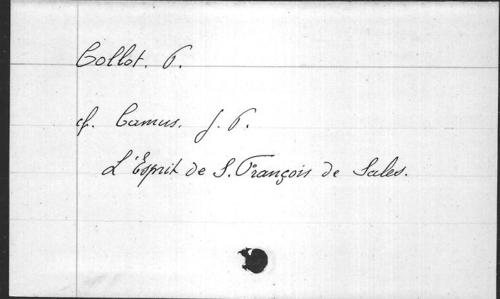 Collot. P.
cf. Camus. J. P.
L'Esprit de S. François de Sales.